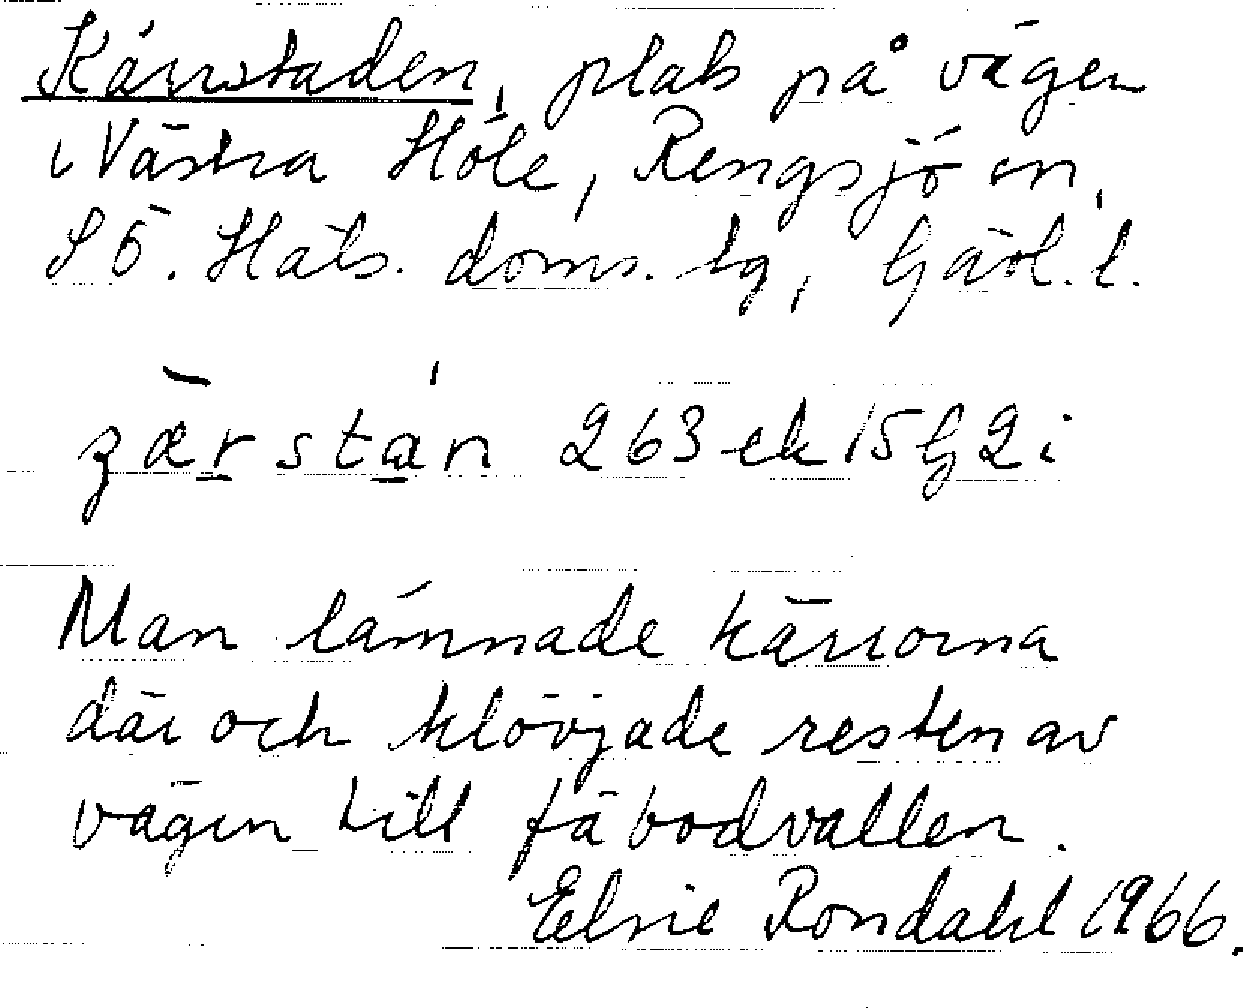 Kärrstaden, plats på vägen
i Västra Höle, Rengsjö sn,
SÖ. Häls. doms. tg, Gävl. l.
zærstán 263 ek 15 G2i
Man lämnade kärrorna
där och klövjade resten av
vägen till fäbodvallen.
Elsie Rondahl 1966.